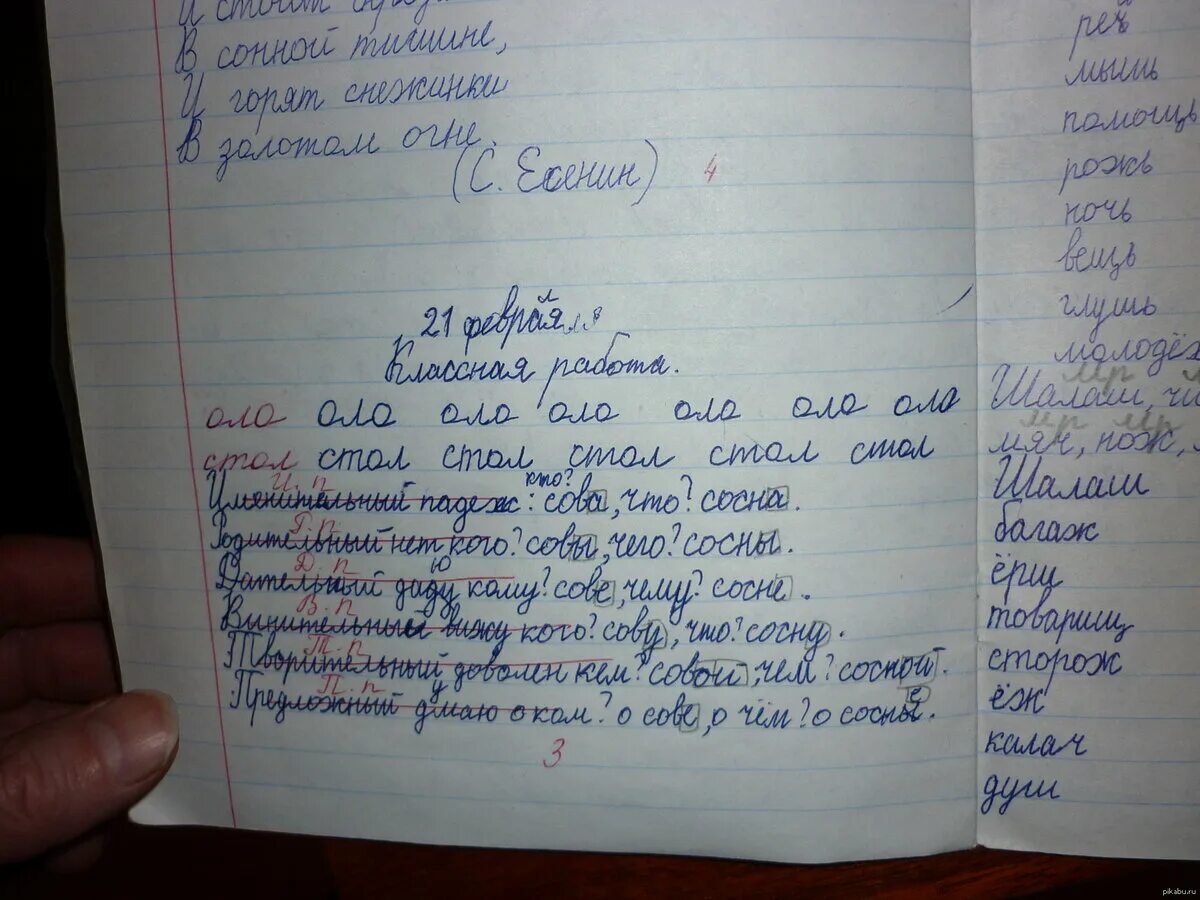 И стоит
В сонной тишине,
И горят снежинки
В золотом огне.
(С. Есенин) 4
21 февраля
Классная работа.
ола ола ола ола ола ола ола
стол стол стол стол стол стол
И. п кто?
Именительный падеж: сова, что? сосна.
Р. п
Родительный нет кого? совы, чего? сосны.
Д. п ю
Дательный даду кому? сове, чему? сосне.
В. п
Винительный вижу кого? сову, что? сосну.
Т. п
Творительный доволен кем? совой, чем? сосной.
П. п у е
Предложный дмаю о ком? о сове, о чём? о сосны.
3
реч
мышь
помощь
рожь
ночь
вещь
глушь
молодёж
мр
Шалаш, чи
мр мр
мяч, нож,
Шалаш
багаж
ёрш
товарищ
сторож
ёж
калач
душ
pikabu.ru